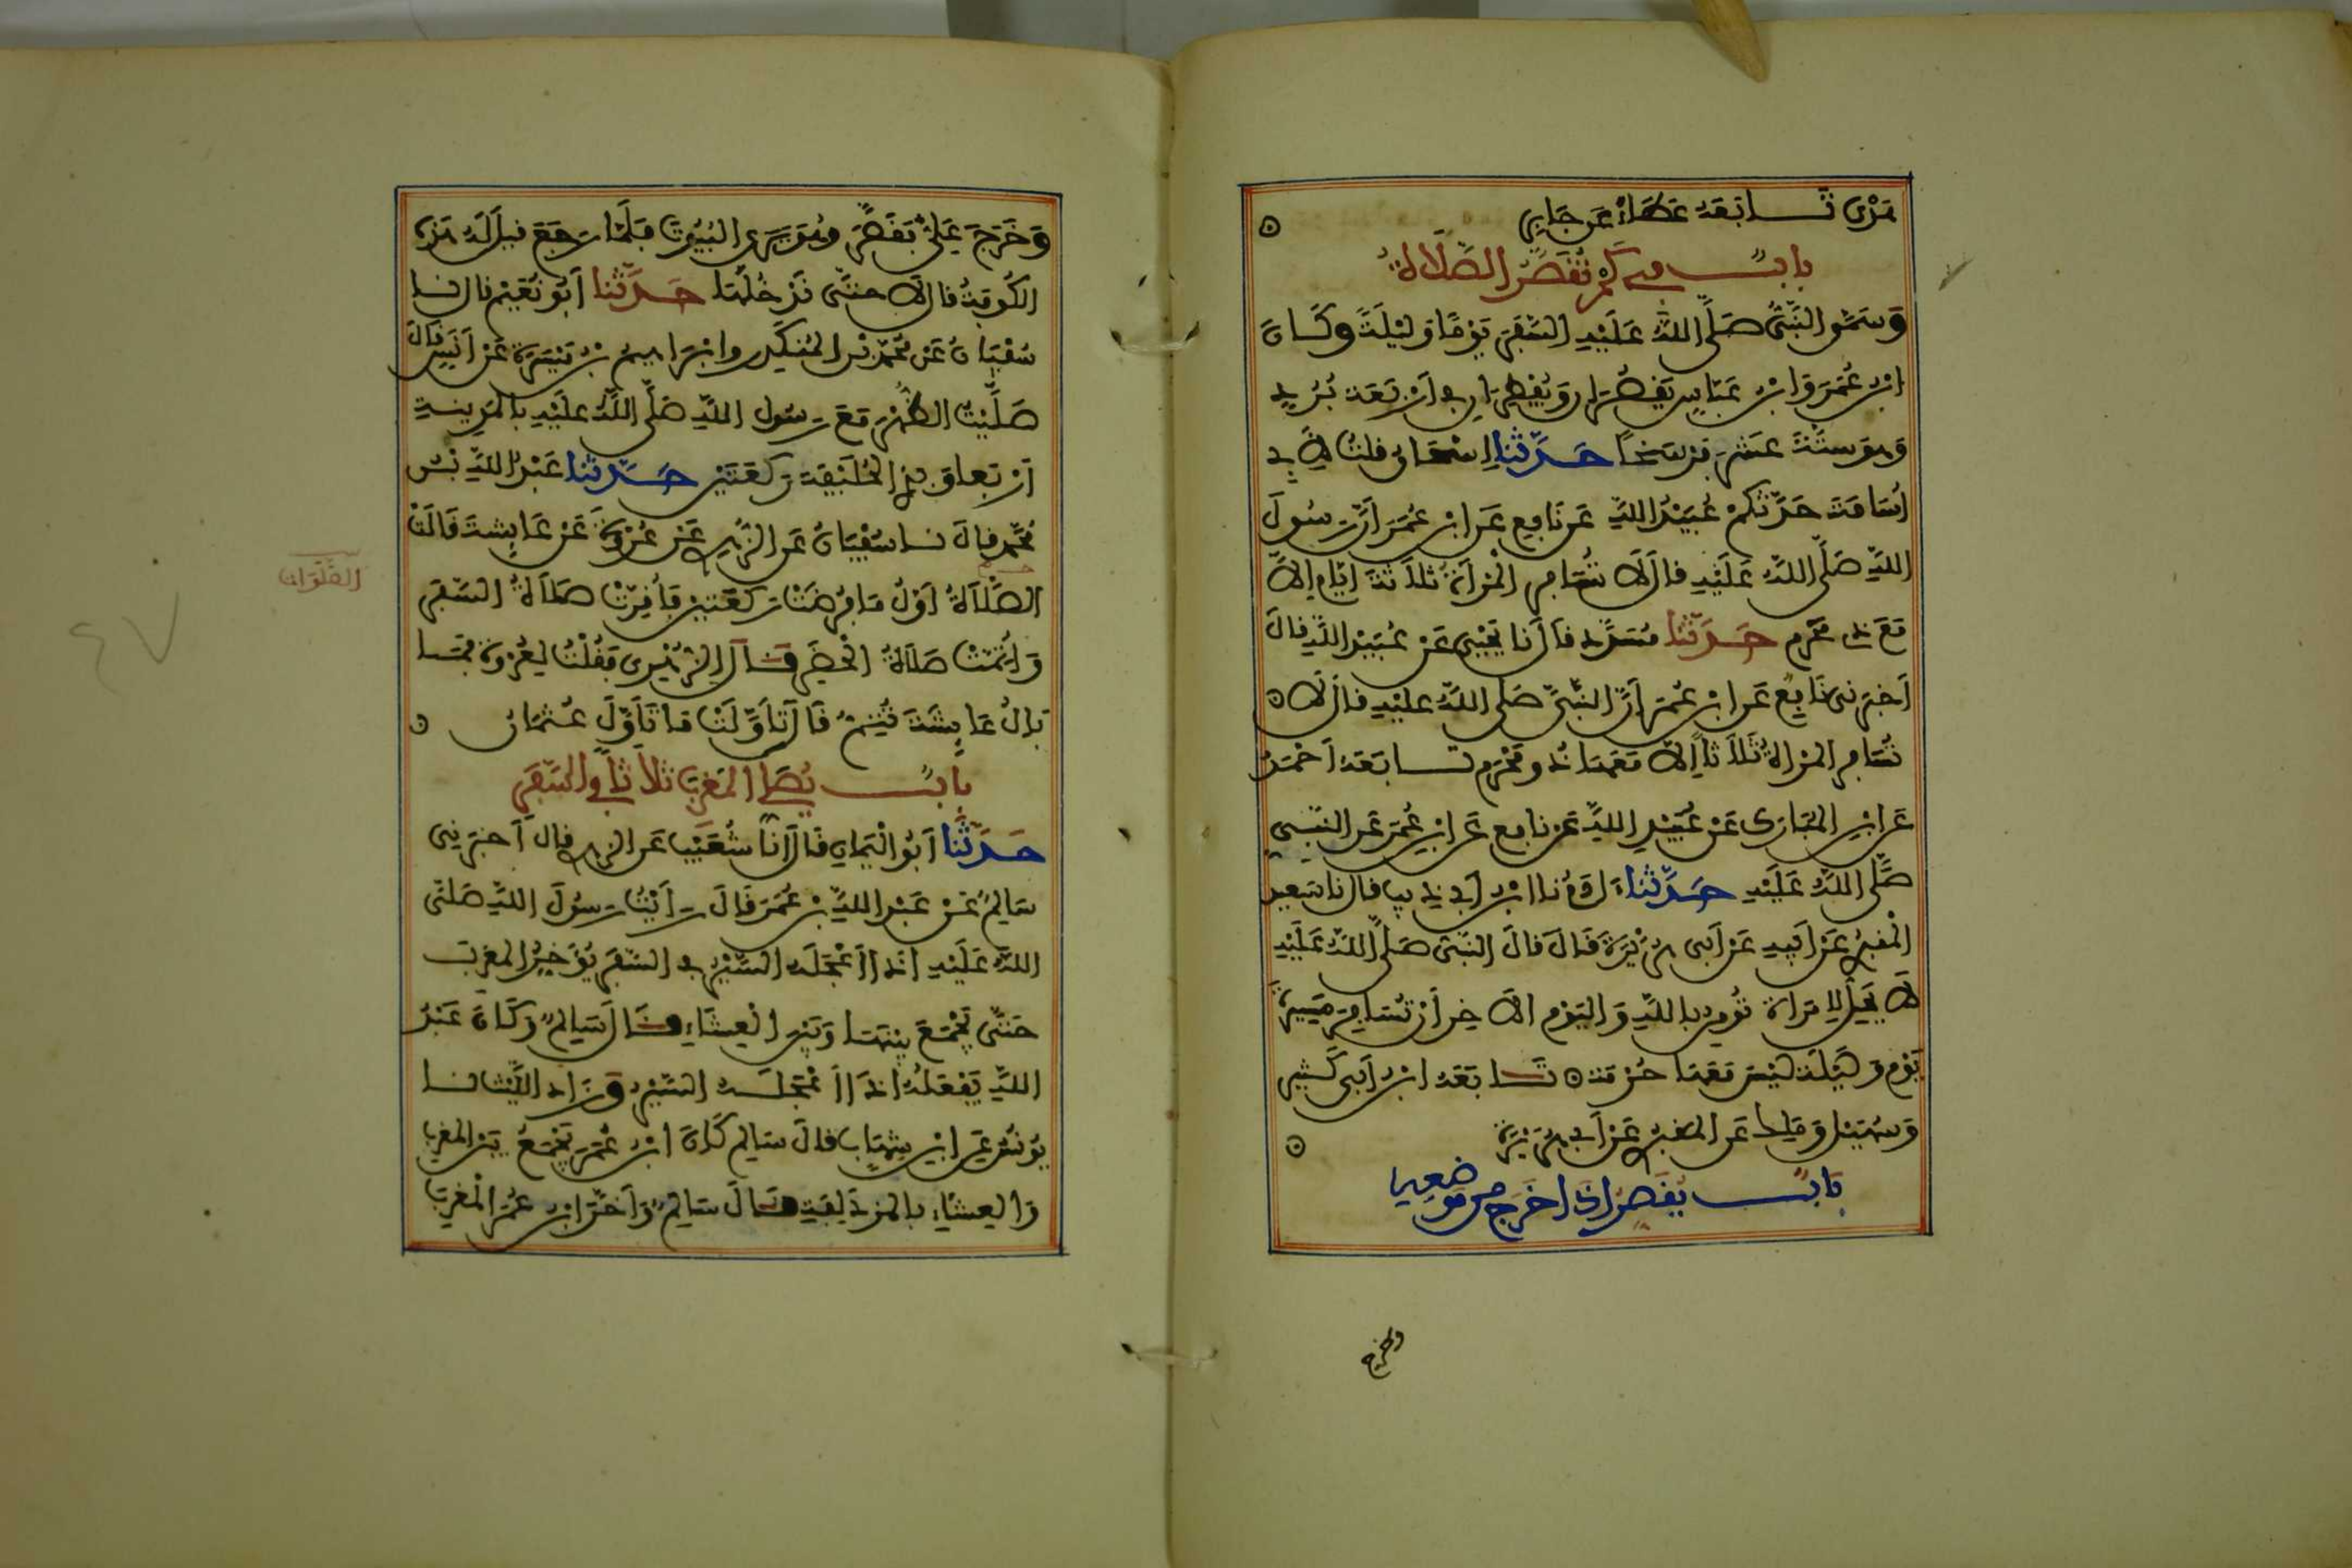 هَدْى تَابَعَهُ عَطَاءٌ عَن جَابِرٍ
بابٌ في كَمْ تُقْصَرُ الصَّلَاةُ
وَسَمَّى النَّبِيُّ صَلَّى اللهُ عَلَيْهِ السَّفَرَ يَوْمًا وَلَيْلَةً وَكَانَ
ابْنُ عُمَرَ وَابْنُ عَبَّاسٍ يَقْصُرَانِ وَيُفْطِرَانِ في أَرْبَعَة بُرُدٍ
وَهُوَ سِتَّةَ عَشَرَ فَرْسَخًا حَدَّثَنَا إِسْحَاق قلتُ لأَبِي
أُسَامَة حَدَّثَكُمْ عُبَيْدُ اللهِ عَن نَافِعٍ عَن ابْنِ عُمَرَ أَنَّ رَسُولَ
اللهِ صَلَّى اللهُ عَلَيْهِ قال لَا تُسَافِرِ الْمَرْأَةُ ثَلَاثَةَ أَيَّامٍ إِلَّا
مَعَ ذِي مَحْرَمٍ حَدَّثَنَا مُسَدَّد قال نا يَحْيَى عَنْ عُبَيْدِ اللهِ قالَ
أَخْبَرَنِي نَافِع عَن ابْنِ عُمَرَ أَنَّ النَّبِيَّ صَلَّى اللهُ عليْهِ قال لَا
تُسَافِرِ المرأةُ ثَلَاثًا إِلَّا مَعَهَا ذُو مَحْرَمٍ تَابَعَهُ أَحْمَدُ
عَن ابْنِ المُبَارَكِ عَنْ عُبَيْدِ اللهِ عَن نافع عَن ابْنِ عُمَرَ عَن النَّبِيِّ
صَلَّى اللهُ عَلَيْهِ حَدَّثَنَا آدَمُ نا ابْنُ أَبِي ذِيبٍ قال نا سَعِيد
الْمَقْبُرِي عَنْ أَبِيهِ عَنْ أَبِي هُرَيْرَةَ قَالَ قالَ النَّبِيُّ صَلَّى اللهُ عَلَيْهِ
لَا يَحِلُّ لِامْرَأَة تُومِنُ بِاللهِ وَالْيَوْمِ الْآخِرِ أَنْ تُسَافِرَ مَسِيرَةَ
يَوْمٍ وَلَيْلَة لَيْسَ مَعَهَا حُرْمَة تَابَعَهُ ابْنُ أَبِي كَثِيرٍ
وَسُهَيْل وَمَالِك عَن المَقْبُرِي عَنْ أَبِي هُرَيْرَةَ
بَابٌ يَقْصُرُ إِذَا خَرَجَ من مَوْضِعِهِ
وخرج
وَخَرَجَ عَلِيٌّ فَقَصَرَ وَهُوَ يَرَى الْبُيُوتَ فَلَمَّا رَجَعَ قِيلَ لَهُ هَذِهِ
الكُوفَةُ قال لَا حَتَّى نَدْخُلَهَا حَدَّثَنَا أَبُو نُعَيْم قال نا
سُفْيَانُ عَنْ مُحَمَّدِ بْنِ الْمُنْكَدِرِ وَابْرَاهِيمَ بْنِ مَيْسَرَةَ عَنْ أَنَسٍ قالَ
صَلَّيْتُ الظُّهْرَ مَعَ رَسُولِ اللهِ صَلَّى اللهُ عَلَيْهِ بِالْمَدِينَةِ
أَرْبَعًا وَبِذِي الْحُلَيْفَة رَكْعَتَيْنِ حَدَّثَنَا عَبْدُ اللهِ بْنُ
مُحَمَّد قالَ نا سُفْيَانُ عَن الزُّهْرِي عَنْ عُرْوَةَ عَنْ عَايِشَةَ قَالَتْ
الصَّلَاةُ أَوَّلُ مَا فُرِضَتْ رَكْعَتَيْنِ فَأُقِرَّتْ صَلَاةُ السَّفَرِ
الصَّلَوَات
وَأُتِمَّتْ صَلَاةُ الْحَضَرِ قَالَ الزُّهْرِي فَقُلْتُ لِعُرْوَةَ فَمَا
بَالُ عَايِشَةَ تُتِمُّ قَالَ تَأَوَّلَتْ مَا تَأَوَّلَ عُثْمَانُ
بَابٌ يُصَلِّي المَغْرِبَ ثَلَاثًا في السَّفَرِ
حَدَّثَنَا أَبُو الْيَمَانِ قَالَ أَنَا شُعَيْبٌ عَن الزهري قال أَخْبَرَنِي
سَالِمٌ عَنْ عَبْدِ اللهِ بْنِ عُمَرَ قَالَ رَأَيْتُ رَسُولَ اللهِ صَلَّى
اللهُ عَلَيْهِ إِذَا أَعْجَلَهُ السَّيْرُ في السَّفَرِ يُوَخِّرُ المَغْرِبَ
حَتَّى يَجْمَعَ بَيْنَهَا وَبَيْنَ الْعِشَاءِ قَالَ سَالِمٌ وَكَانَ عَبْدُ
اللهِ يَفْعَلُهُ إِذَا أَعْجَلَهُ السَّيْرُ وَزَادَ اللَّيْثُ نا
يُونُسُ عَن ابْنِ شِهَابٍ قالَ سَالِم كَانَ ابْنُ عُمَرَ يَجْمَعُ بَيْنَ المَغْرِبِ
وَالْعِشَاءِ بِالْمُزْدَلِفَةِ قَالَ سَالِمٌ وَأَخَّرَ ابْنُ عُمَرَ الْمَغْرِبَ
٤٧